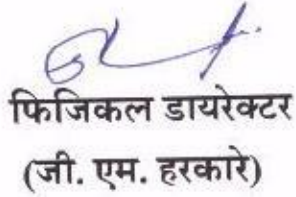 फिजिकल डायरेक्टर
(जी. एम. हरकारे)